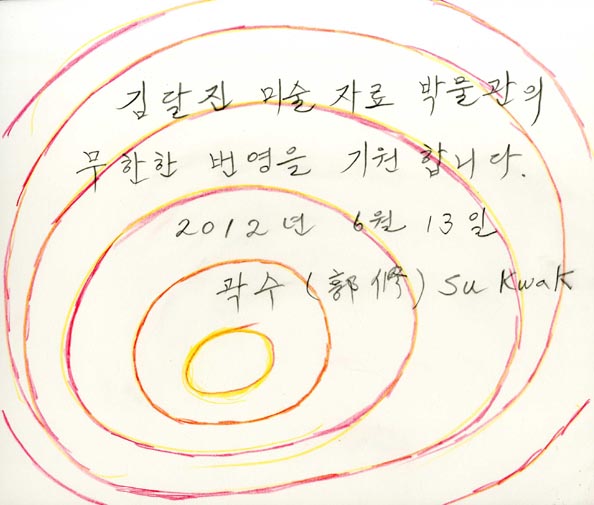 김달진 미술 자료 박물관의
무한한 번영을 기원합니다.
2012년 6월 13일
곽수 (郭修) Su Kwak